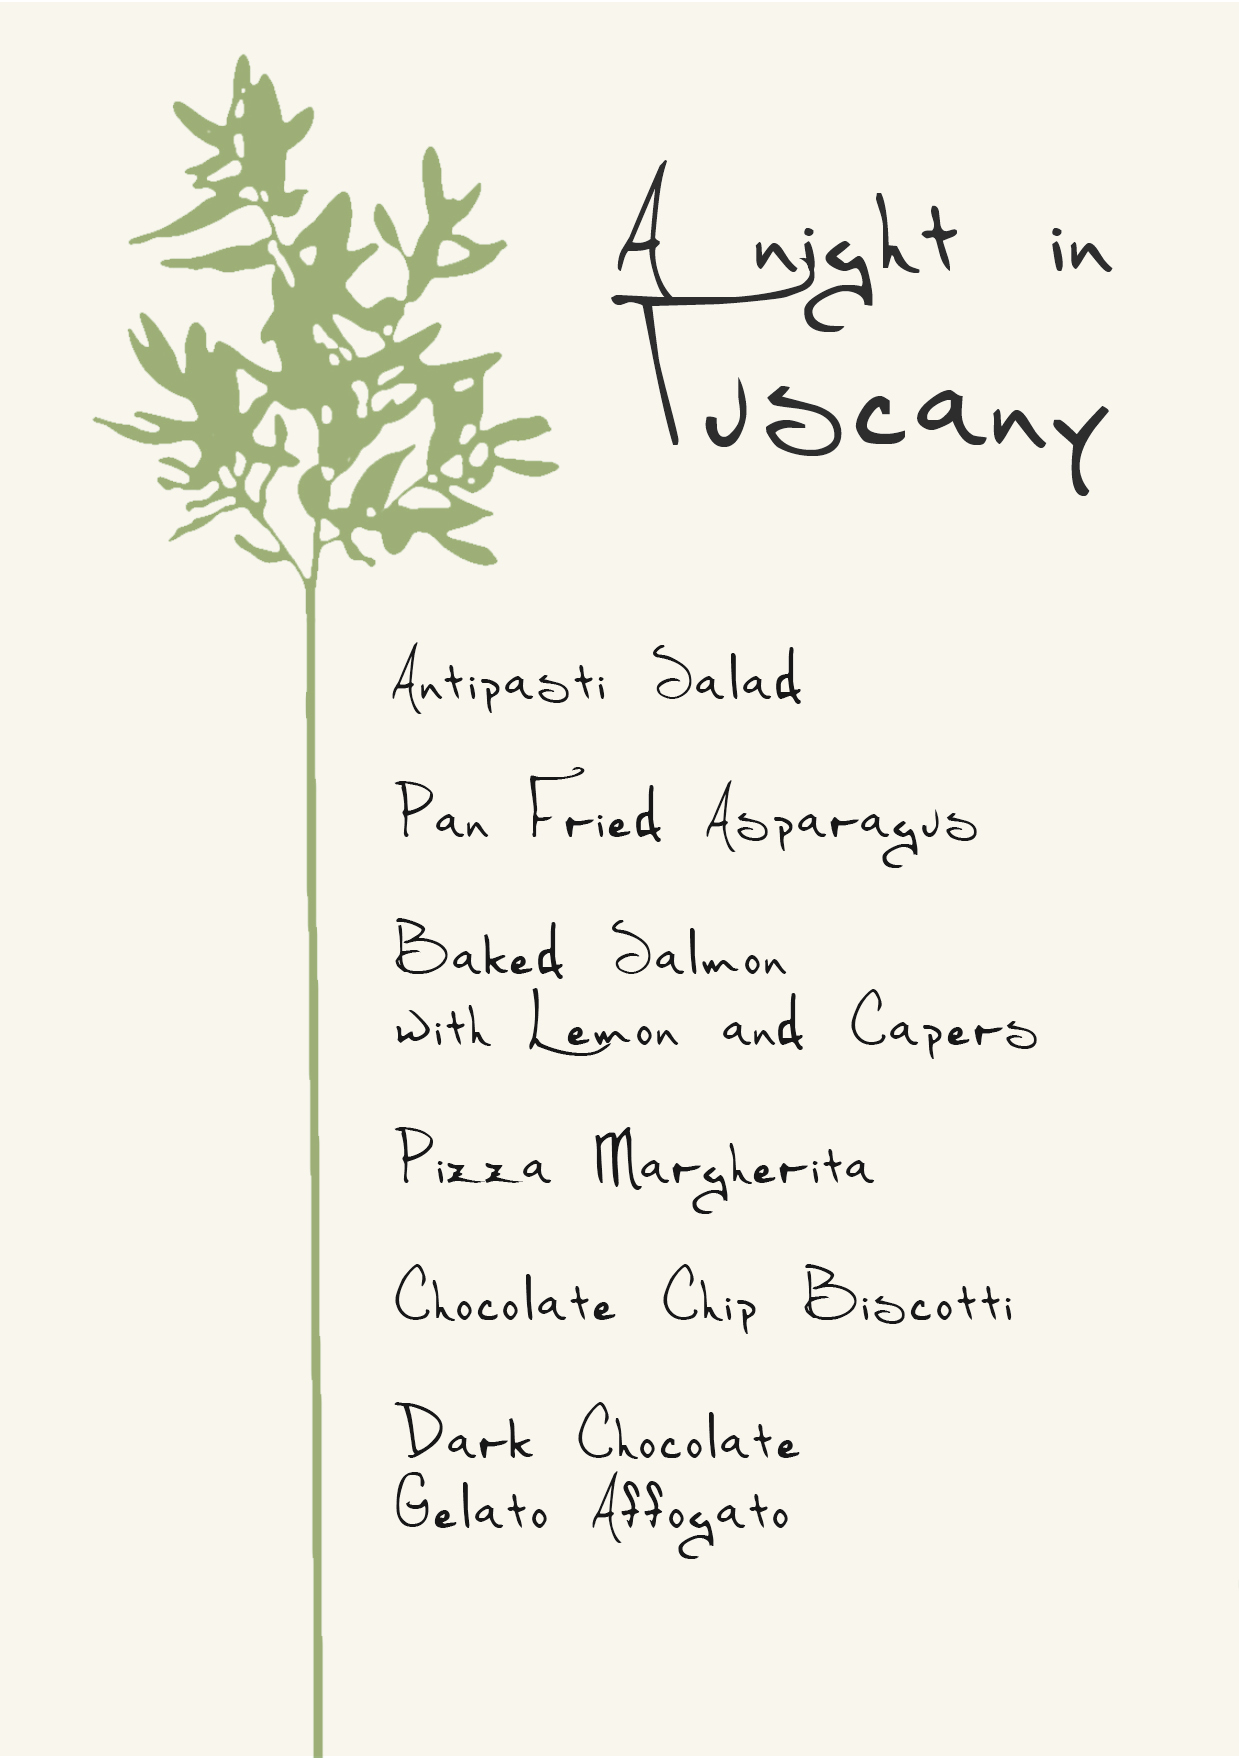 A night in
Tuscany
Antipasti Salad
Pan Fried Asparagus
Baked Salmon
with Lemon and Capers
Pizza Margherita
Chocolate Chip Biscotti
Dark Chocolate
Gelato Affogato